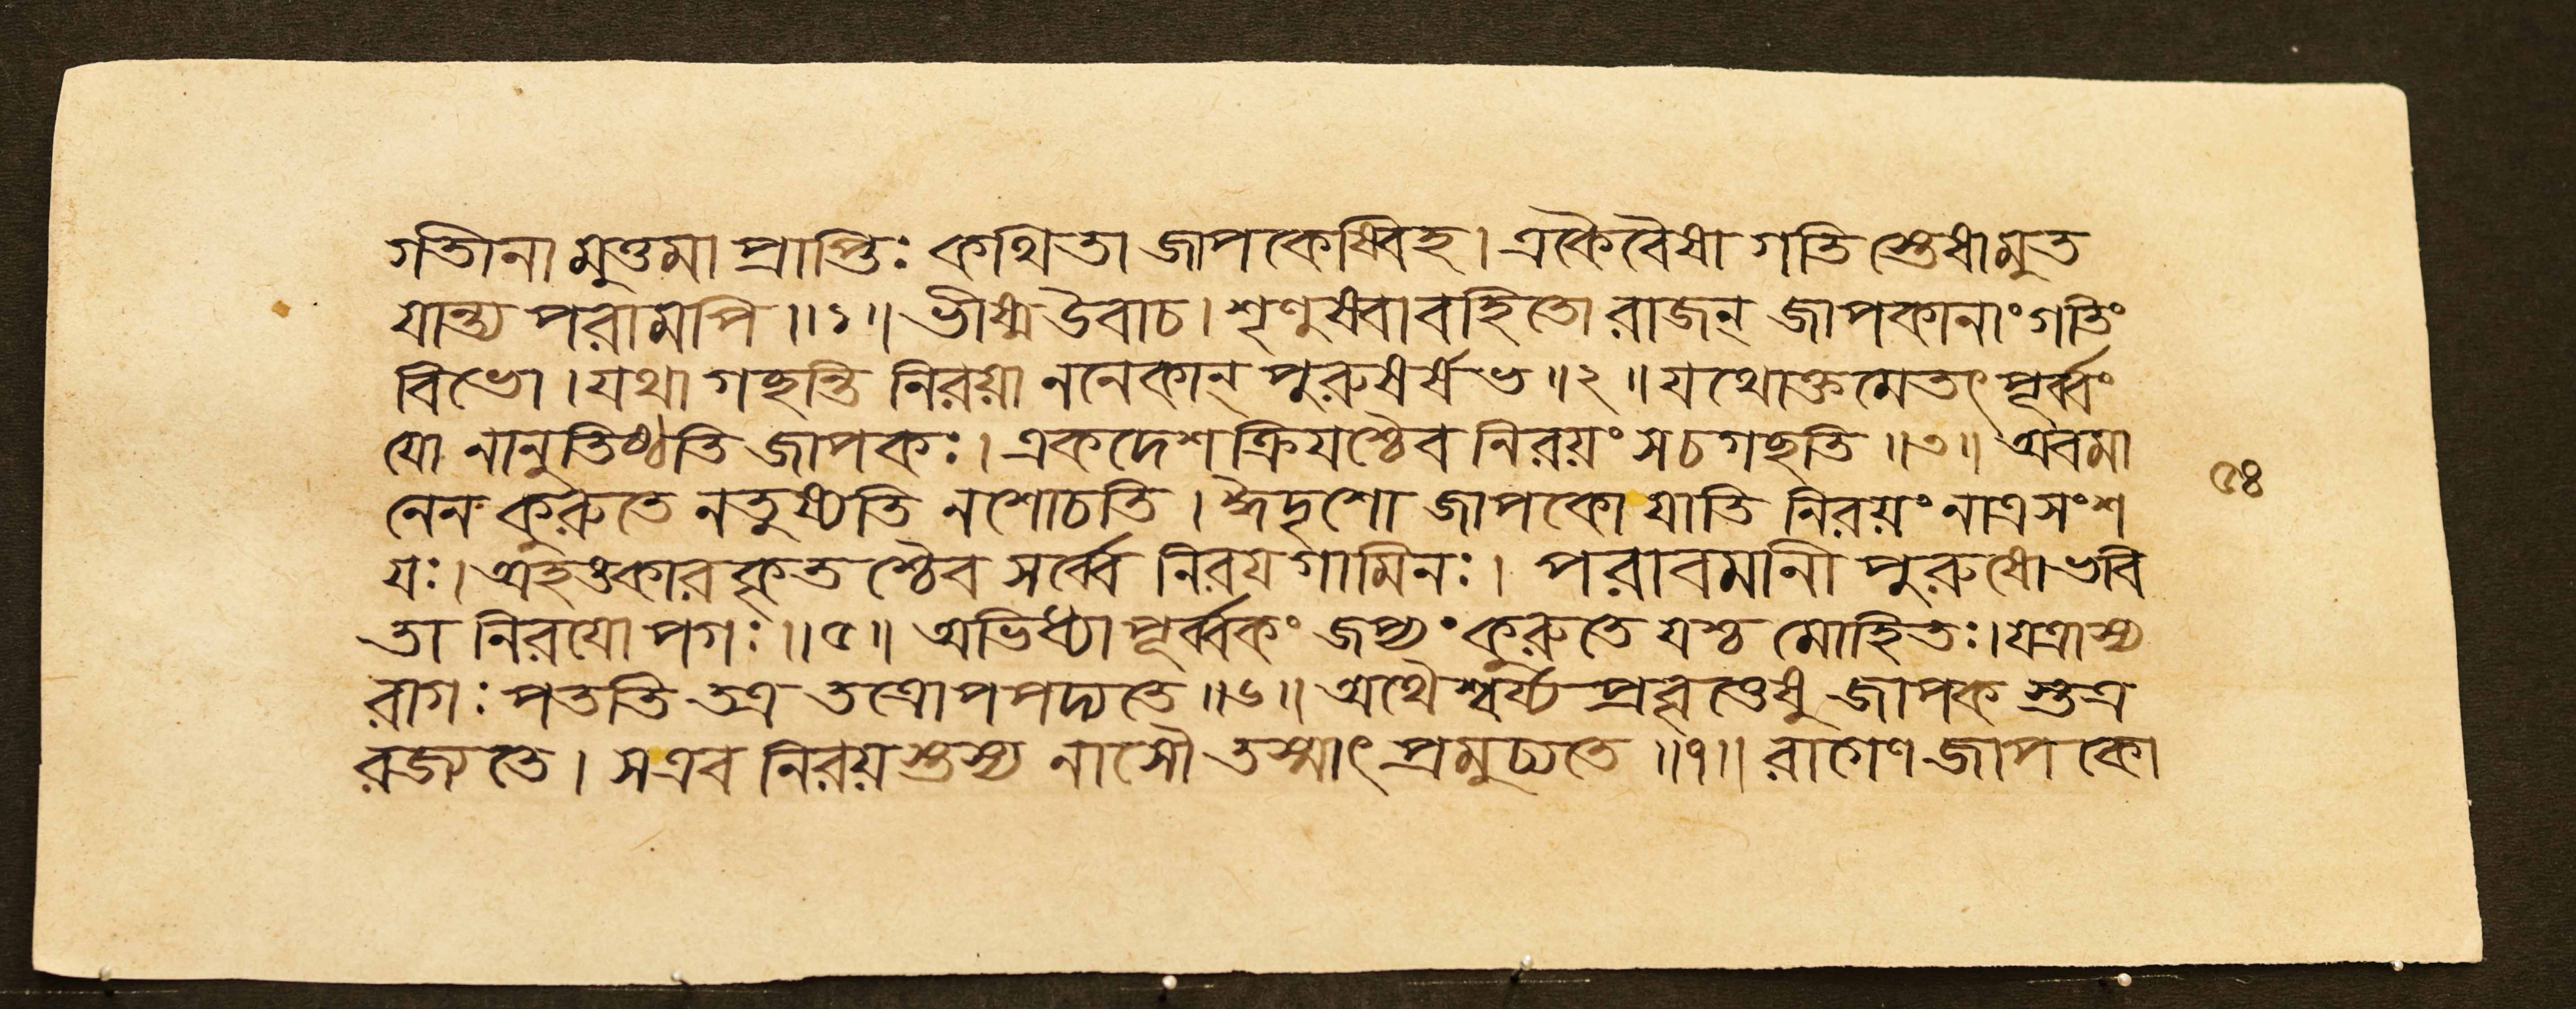 গতীনামুত্তমা প্রাপ্তিঃ কথিতা জাপকেষ্বিহ। একৈবৈষা গতিস্তেষামুত
যান্ত্য পরামপি॥১॥ ভীষ্ম উবাচ। শৃণুষ্বাবহিতো রাজন্ জাপকানাং গতিং
বিভো। যথা গচ্ছন্তি নিরয়াননেকান্ পুরুষর্ষভ॥২॥ যথোক্তমেতৎ পূর্ব্বং
যো নানুতিষ্ঠতি জাপকঃ। একদেশক্রিযশ্চৈব নিরয়ং স চ গচ্ছতি॥৩॥ অবমা
নেন কুরুতে ন তুষ্যতি ন শোচতি। ঈদৃশো জাপকো যাতি নিরয়ং নাত্র সংশ
যঃ। অহঙ্কারকৃতশ্চৈব সর্ব্বে নিরযগামিনঃ। পরাবমানী পুরুষো ভবি
তা নিরযোপগঃ॥৫॥ অভিধ্যাপূর্ব্বকং জপ্যং কুরুতে যশ্চ মোহিতঃ। যত্রাস্য
রাগঃ পততি তত্র তত্রোপপদ্যতে॥৬॥ অথৈশ্বর্য্যপ্রবৃত্তেষু জাপকস্তত্র
রজ্যতে। স এব নিরয়স্তস্য নাসৌ তস্মাৎ প্রমুচ্যতে॥৭॥ রাগেণ জাপকো
৫৪